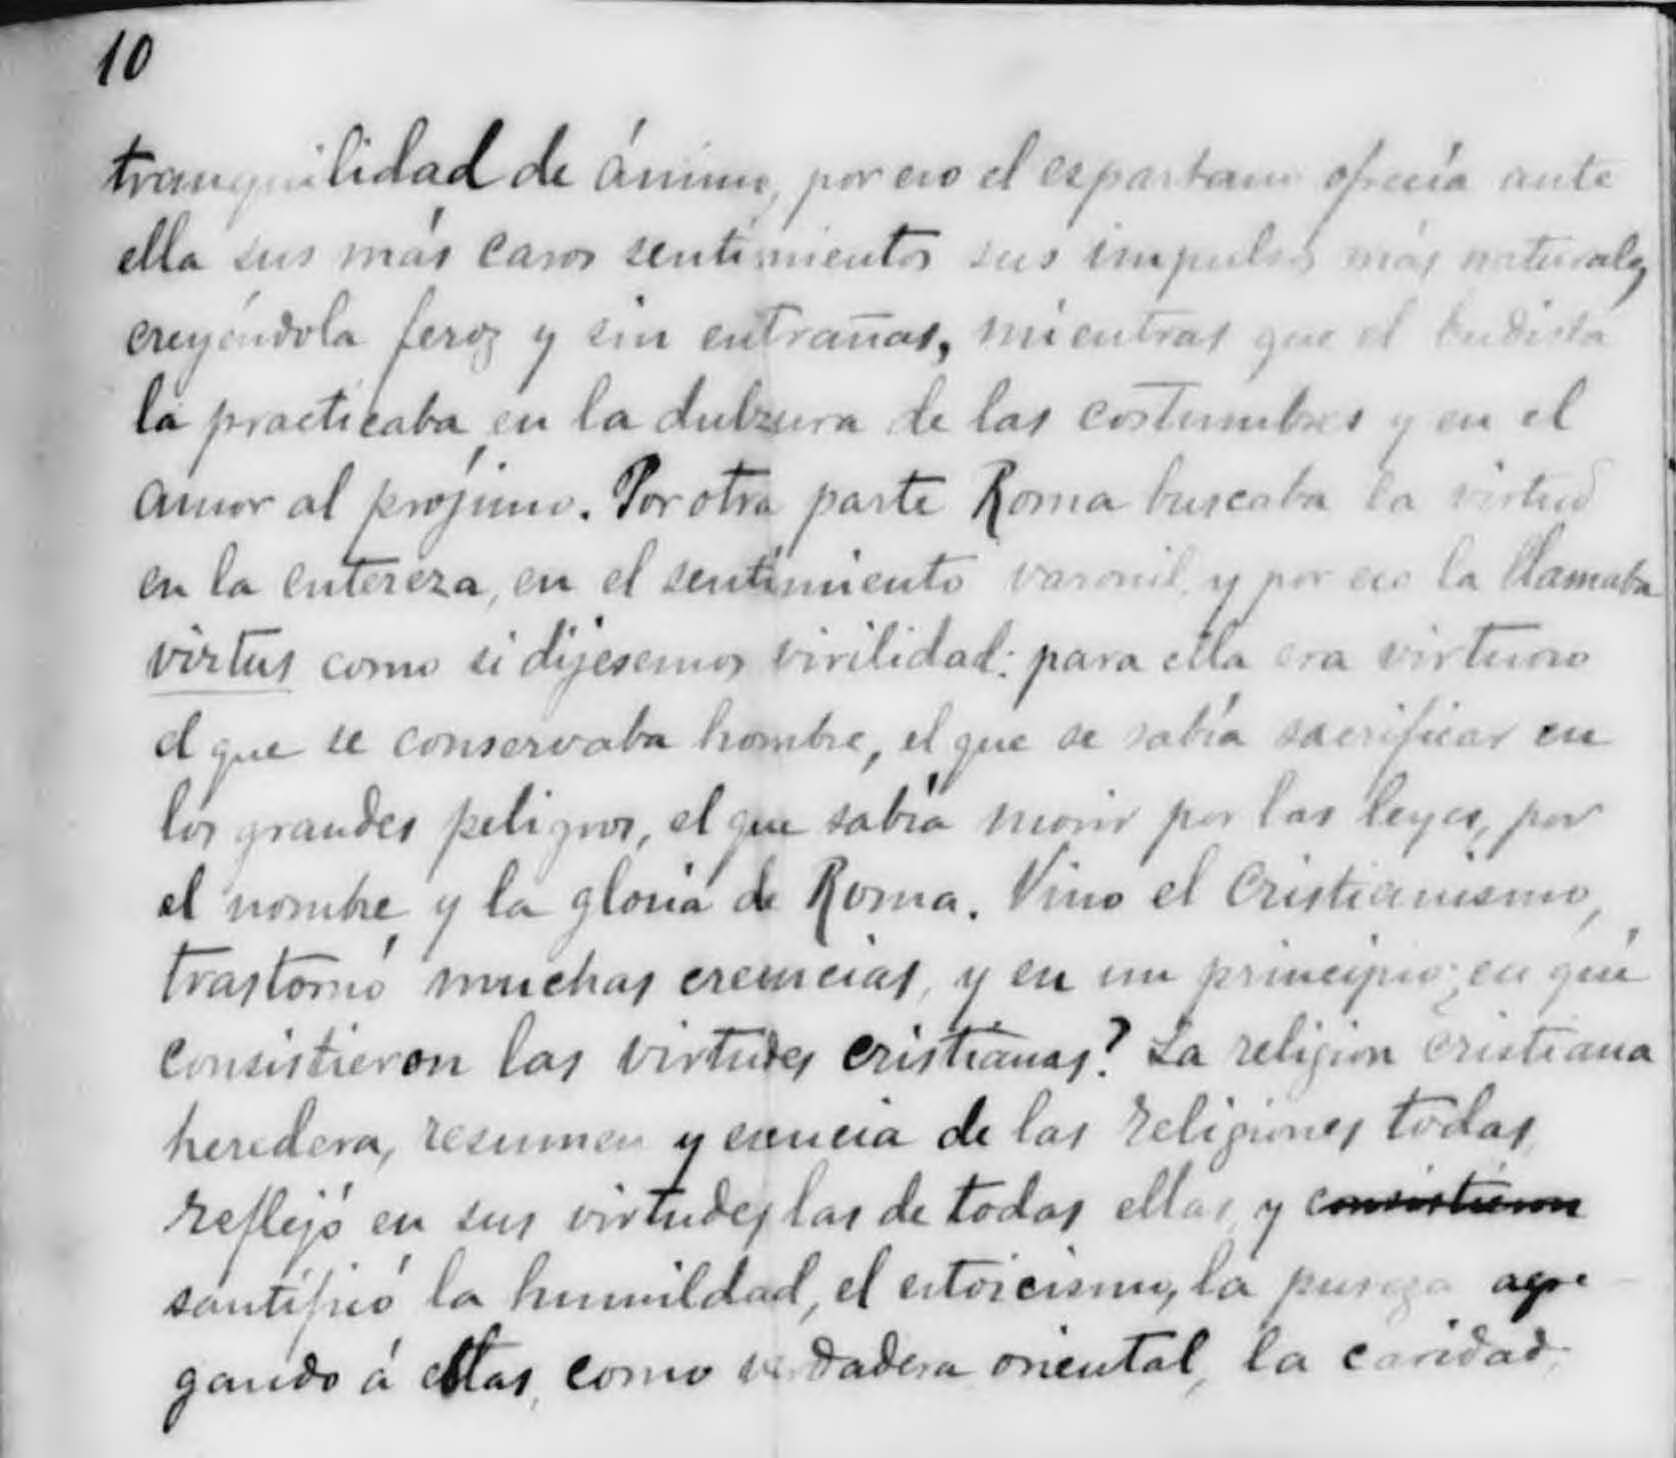 10
tranquilidad de ánimo, por eso el espartano ofrecía ante
ella sus más caros sentimientos sus impulsos más naturales,
creyéndola feroz y sin entrañas, mientras que el budista
la practicaba en la dulzura de las costumbres y en el
amor al prójimo. Por otra parte Roma buscaba la virtud
en la entereza, en el sentimiento varonil, y por eso la llamaba
virtus como si dijesemos virilidad: para ella era virtuoso
el que se conservaba hombre, el que se sabía sacrificar en
los grandes peligros, el que sabía morir por las leyes, por
el nombre y la gloria de Roma. Vino el Cristianismo,
trastornó muchas creencias, y en un principio ¿en qué
consistieron las virtudes cristianas? La religion cristiana
heredera, resumen y esencia de las religiones todas,
reflejó en sus virtudes las de todas ellas, y consistieron
santificó la humildad, el estoicismo, la pureza agre-
gando á estas, como verdadera oriental, la caridad,